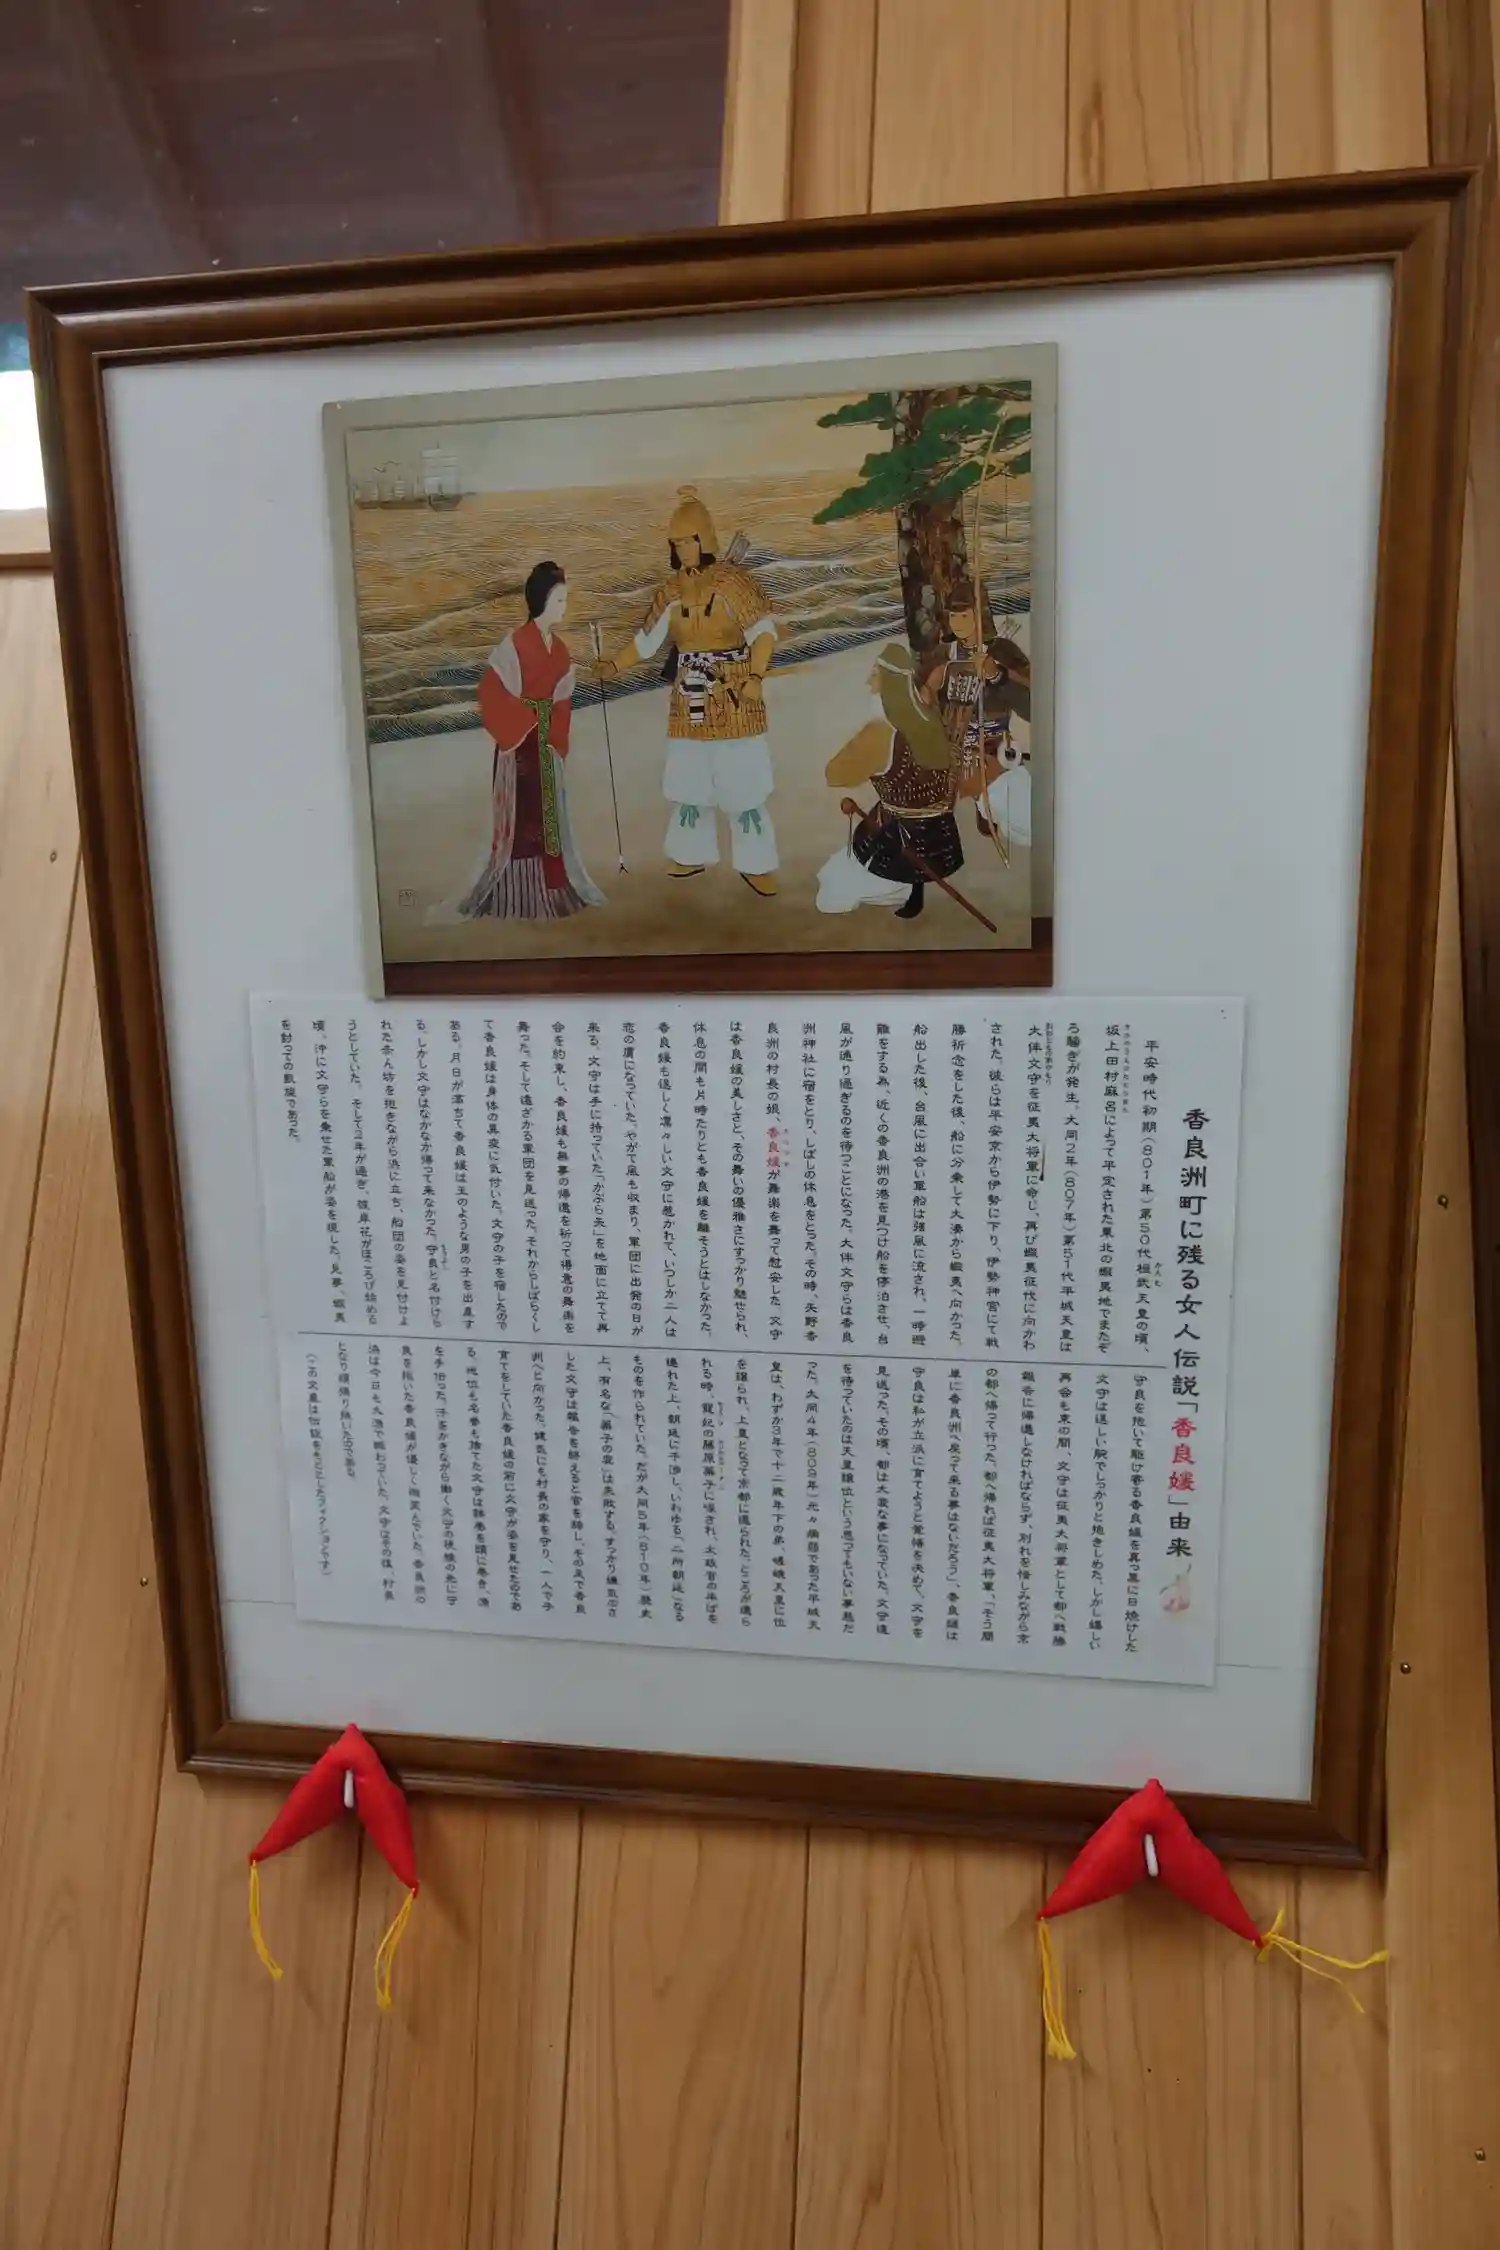 香良洲町に残る女人伝説「香良媛」由来
平安時代初期(801年)第50代桓武天皇の頃、
坂上田村麻呂によって平定された東北の蝦夷地でまたぞ
ろ騒ぎが発生。大同2年(807年)第51代平城天皇は
大伴文守を征夷大将軍に命じ、再び蝦夷征伐に向かわ
された。彼らは平安京から伊勢に下り、伊勢神宮にて戦
勝祈念をした後、船に分乗して大湊から蝦夷へ向かった。
船出した後、台風に出合い軍船は強風に流され、一時避
難をする為、近くの香良洲の港を見つけ船を停泊させ、台
風が通り過ぎるのを待つことになった。大伴文守らは香良
洲神社に宿をとり、しばしの休息をとった。その時、矢野香
良洲の村長の娘、香良媛が舞楽を舞って慰安した。文守
は香良媛の美しさと、その舞いの優雅さにすっかり魅せられ、
休息の間も片時たりとも香良媛を離そうとはしなかった。
香良媛も逞しく凛々しい文守に惹かれて、いつしか二人は
恋の虜になっていた。やがて風も収まり、軍団に出発の日が
来る。文守は手に持っていた「かぶら矢」を地面に立てて再
会を約束し、香良媛も無事の帰還を祈って得意の舞楽を
舞った。そして遠ざかる軍団を見送った。それからしばらくし
て香良媛は身体の異変に気付いた。文守の子を宿したので
ある。月日が満ちて香良媛は玉のような男の子を出産す
る。しかし文守はなかなか帰って来なかった。守良と名付けら
れた赤ん坊を抱きながら浜に立ち、船団の姿を見付けよ
うとしていた。そして2年が過ぎ、彼岸花がほころび始める
頃、沖に文守らを乗せた軍船が姿を現した。見事、蝦夷
を討っての凱旋であった。
守良を抱いて駆け寄る香良媛を真っ黒に日焼けした
文守は逞しい腕でしっかりと抱きしめた。しかし嬉しい
再会も束の間、文守は征夷大将軍として都へ戦勝
報告に帰還しなければならず、別れを惜しみながら京
の都へ帰って行った。都へ帰れば征夷大将軍、「そう簡
単に香良洲へ戻って来る事はないだろう」、香良媛は
守良は私が立派に育てようと覚悟を決めて、文守を
見送った。その頃、都は大変な事になっていた。文守達
を待っていたのは天皇譲位という思ってもいない事態だ
った。大同4年(809年)元々病弱であった平城天
皇は、わずか3年で十二歳年下の弟、嵯峨天皇に位
を譲られ、上皇となって京都に還られた。ところが還ら
れる時、寵妃の藤原薬子に唆され、太政官の半ばを
連れた上、朝廷に干渉し、いわゆる「二所朝廷」なる
ものを作られていた。だが大同5年(810年)歴史
上、有名な「薬子の変」は失敗する。すっかり嫌気がさ
した文守は報告を終えると官を辞し、その足で香良
洲へと向かった。健気にも村長の家を守り、一人で子
育てをしていた香良媛の前に文守が姿を見せたのであ
る。地位も名誉も捨てた文守は鉢巻を頭に巻き、漁
を手伝った。汗をかきながら働く文守の視線の先に守
良を抱いた香良媛が優しく微笑んでいた。香良洲の
浜は今日も大漁で賑わっていた。文守はその後、村長
となり頑張り抜いたのである。
(この文章は伝説をもとにしたフィクションです)